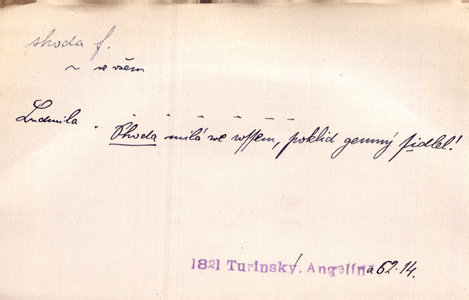 shoda f.
~ ve všem
Ludmila - - - - - -
Shoda milá we wssem, poklid gemný sidlel!
1821 Turinský. Angelina 62.14.